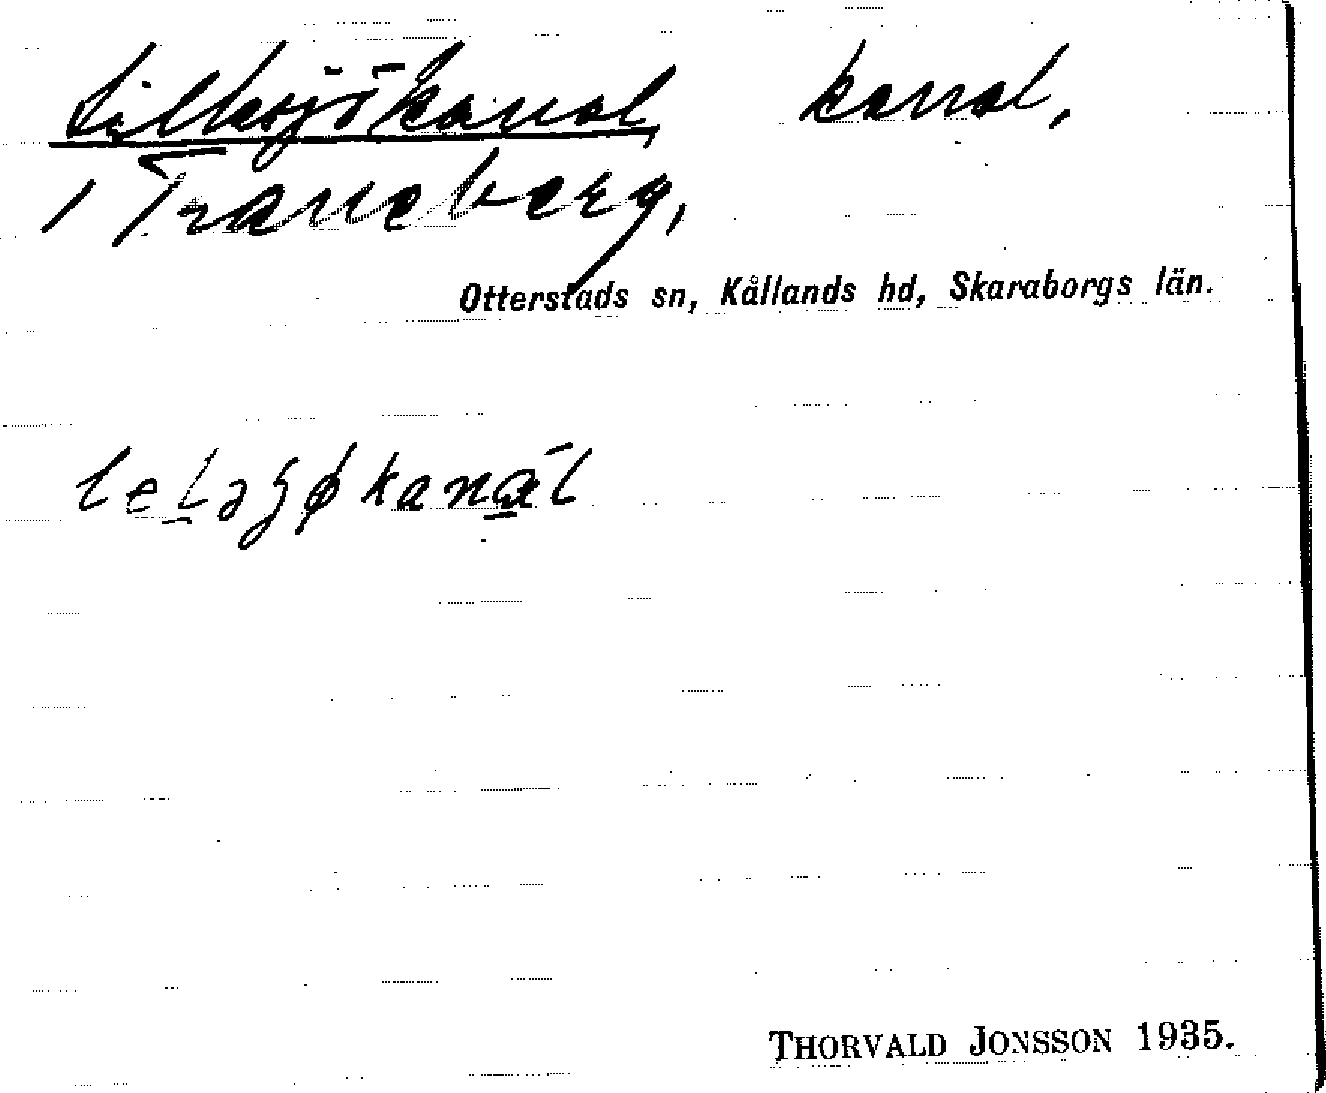 Lillesjökanal, kanal,
i Traneberg,
Otterstads sn, Kållands hd, Skaraborgs län.
THORVALD JONSSON 1935.